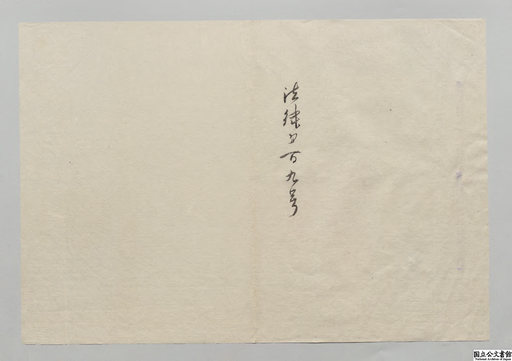 法律第百九号
国立公文書館
National Archives of Japan